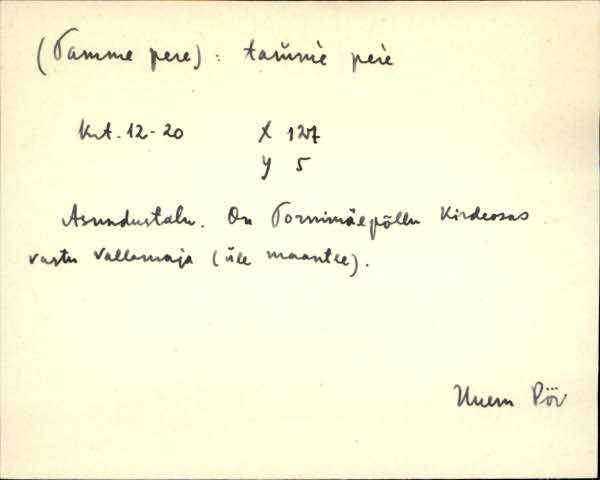 (Tamme pere) : tam̆mè perè
Krt. 12-20 X 127
Y 5
Asundustalu. On Tornimäepõllu kirdeosas
vastu vallamaja (üle maantee).